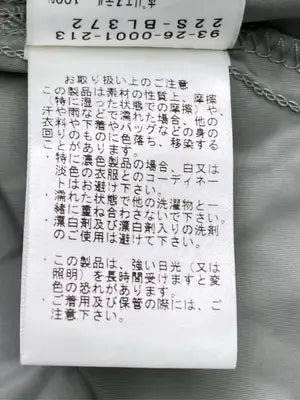 ポリエステル 100%
22S-BL372
93-26-0001-213
お取り扱い上のご注意
・この製品は素材の性質上、摩擦
（特に湿った状態での摩擦）や、
汗や雨などで濡れた場合、他の
衣料や下着やバッグなどの身の
回りのものに色落ち、移染する
ことがあります。
・特に濃色製品の場合、白又は
淡色の衣服とのコーディネー
トはお避け下さい。
・濡れた状態で他の洗濯物と一
緒に重ね合わさないで下さい。
・漂白剤及び漂白剤入りの洗剤
のご使用は避けて下さい。
・この製品は、強い日光（又は
照明）を長時間受けますと変
色の恐れがあります。
・ご着用及び保管の際には、ご
注意下さい。